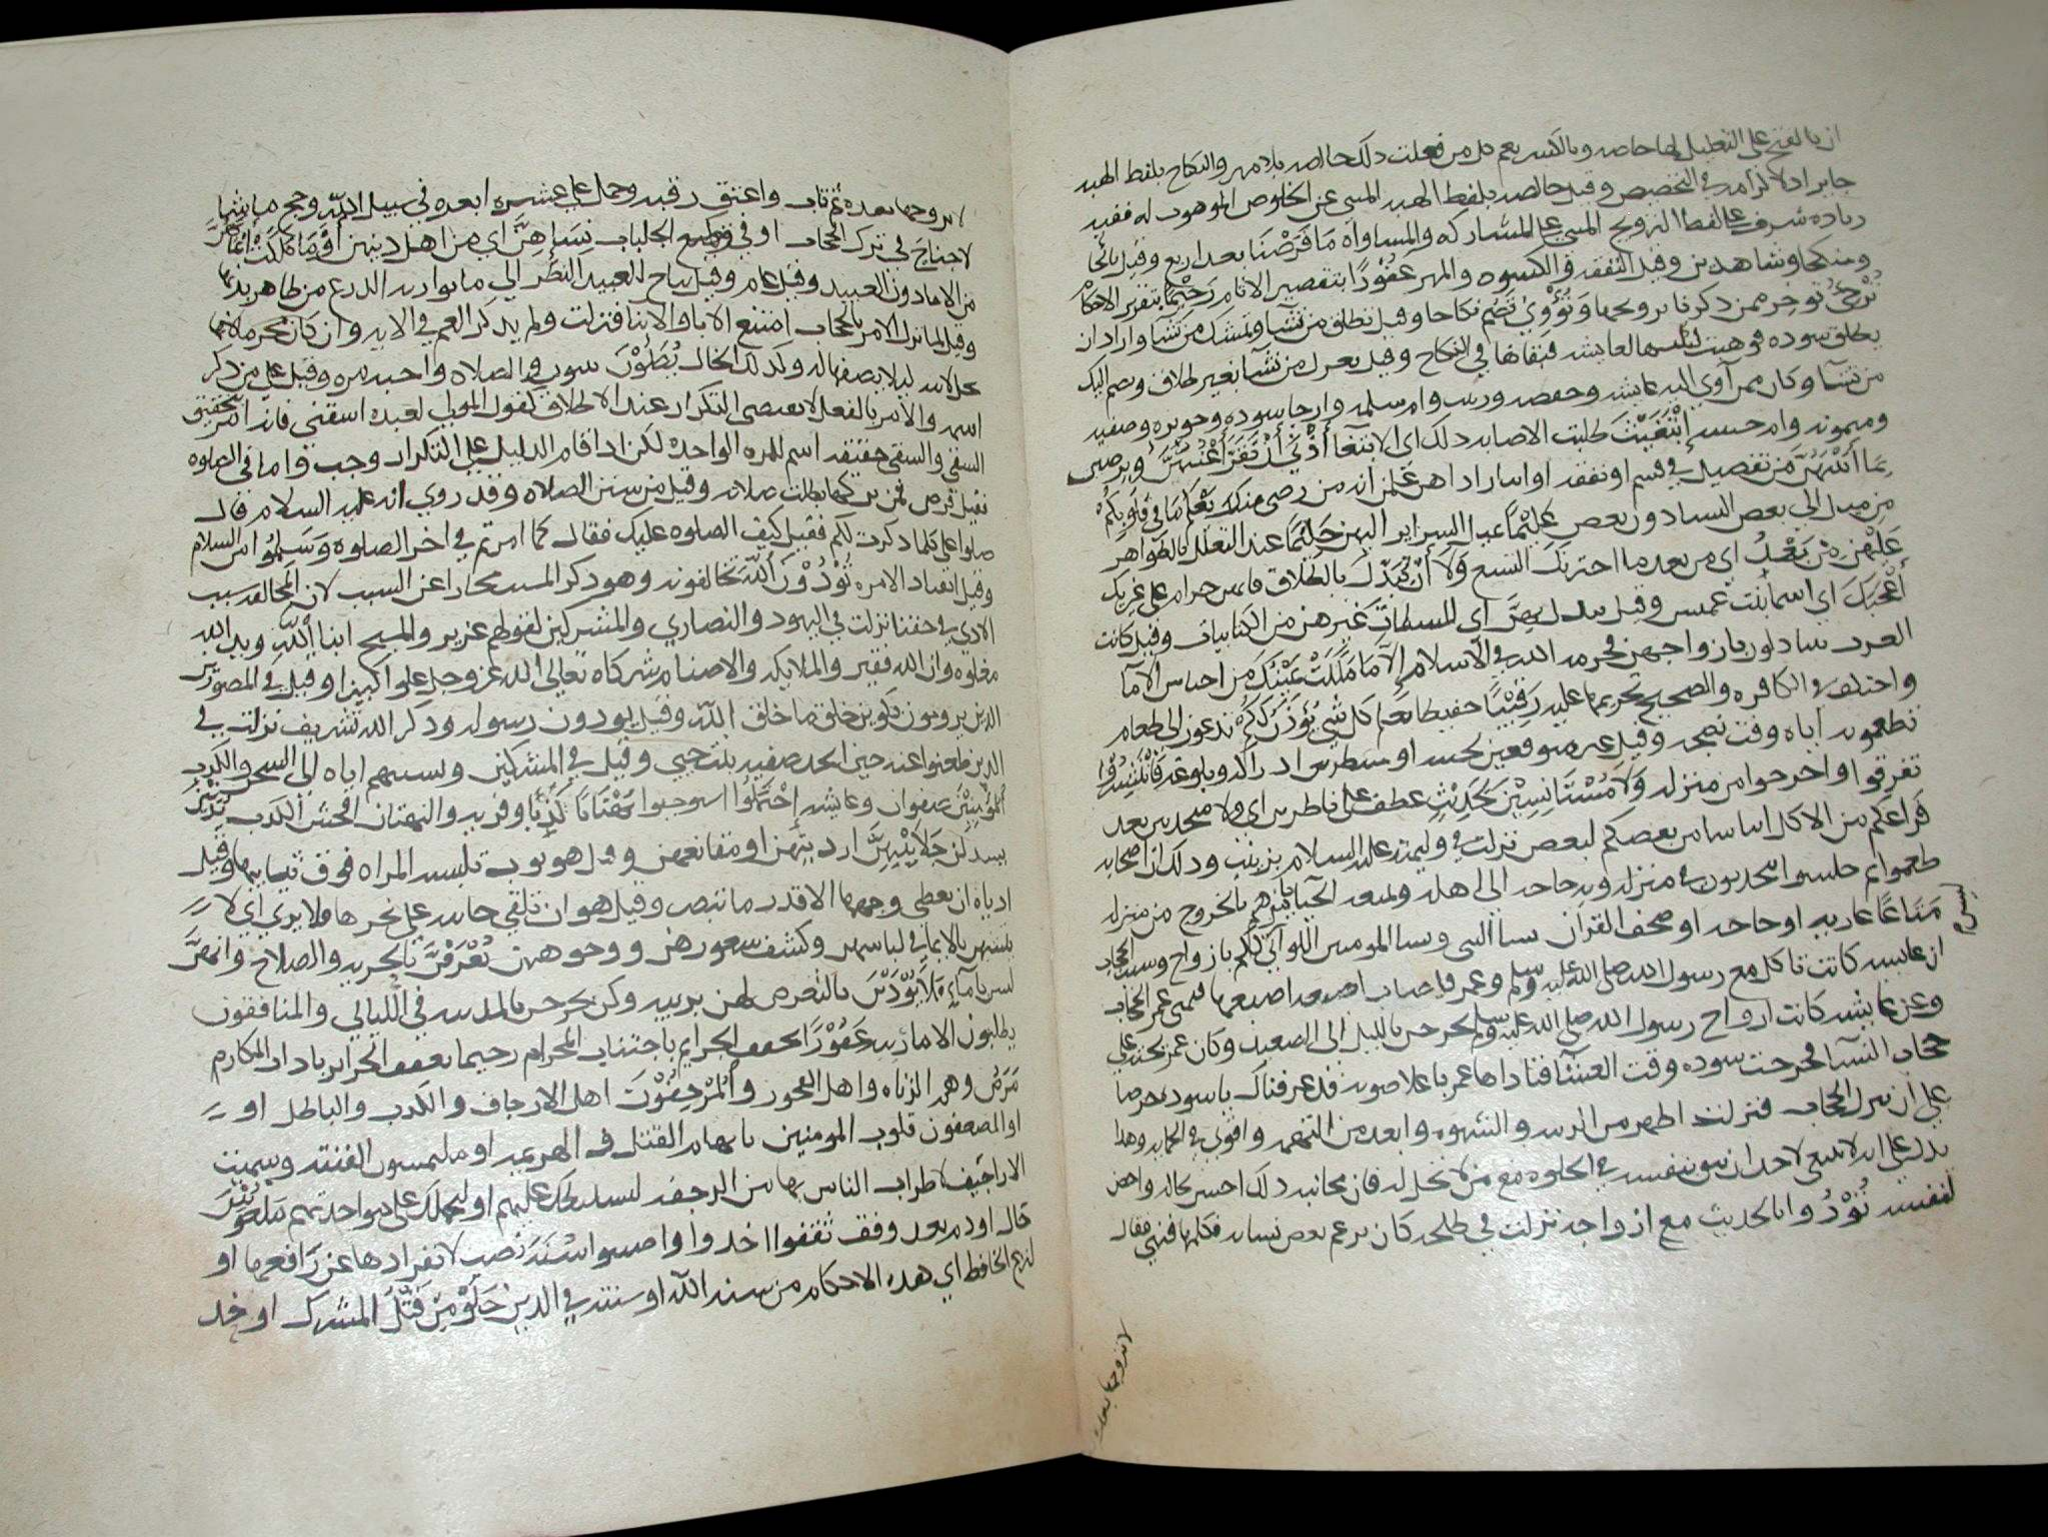 ان بالفتح على التعليل لها خاصه وبالكسر يعم كل من فعلت ذلك خالصه بلا مهر والنكاح بلفظ الهبه
جايز اذ لا في التخصيص وقيل خالصه بلفظ الهبه المبني عن الخلوص الموهوب له ففيه
زياده شرف على لفظ التزويج المبني على المشاركه والمساواه مَا فَرَضْنَا بعد اربع وقيل
وشاهدين وقيل النفقه والكسوه والمهر غَفُوْرًا بتقصير الانام رَحِيْمًا بتقرير الاحكام
تُرْجِئُ توخر ممن ذكرنا تزويجها وَتُؤْوِيْ تضم نكاحا وقيل تطلق من تشا وتمسك من تشا واراد ان
يطلق سوده فوهبت ليلتها لعايشه فبقاها في النكاح وقيل تعزل من تشآ بغير طلاق وتضم اليك
من تشآ وكان ممن آوي اليه عايشه وحفصه وزينب وام سلمه وارجا سوده وجويريه وصفيه
وميمونه وام حبيبه إبْتَغَيْتَ طلبت الاصابه ذلك اي الابتغا أَدْنَى أَنْ تَقَرَّ أَعْيُنُهُنَّ ويرضين
بِمَا آتَيْتَهُنَّ من تفضيل في قسم او نفقه او ايثار اذا هن علمن انه من رضى منك يَعْلَمُ مَا فِي قُلُوبِكُم
من ميل الي بعض النسا دون بعض عَلِيْمًا السراير حَلِيْمًا عند التعلل بالظواهر
عليهن مِنْ بَعْدُ اي من بعد ما اخترنك التسع وَلَا أَنْ تَبَدَّلَ بالطلاق فانهن حرام على غيرك
أَعْجَبَكَ اي اسما بنت عميس وقيل بدل بِهِنَّ اي للمسلمات غيرهن من الكتابيات وقيل كانت
العرب يتبادلون بازواجهن فحرمه الله في الاسلام إلَّا مَا مَلَكَتْ يَمِيْنُكَ من اجناس الآما
واختلف في الكافره والصحيح تحريمها عليه رَقِيْبًا حفيظا يعلم كل شي يُؤْذَنَ لَكُمْ تدعون الى طعام
تطعمونه اناه وقت نضجه وقيل غير متوقعين لحينه او منتظرين ادراكه وبلوغه فَانْتَشِرُوْا
تفرقوا او اخرجوا من منزله وَلَا مُسْتَانِسِيْنَ لِحَدِيْثٍ عطف على ناظرين اي ولا متحدثين بعد
فراغكم من الاكل ايناسا من بعضكم لبعض نزلت في وليمته عليه السلام بزينب وذلك ان اصحابه
طعموا ثم جلسوا يتحدثون في منزله وبه حاجه الى اهله ومنعه الحيا بالخروج من منزله
مَتَاعًا عاريه او حاجه او صحف القرآن نسا النبي ونسا المومنين اللواتي لكم بازواج وسبب الحجاب
ان عايشه كانت تاكل مع رسول الله صلى الله عليه وسلم وعمر فاصاب اصبعه اصبعها فتمنى عمر الحجاب
وعن عايشه كانت ازواج رسول الله صلى الله عليه وسلم يخرجن بالليل الى الصعيد وكان عمر يحثه على
حجاب النسآ فخرجت سوده وقت العشآ فناداها عمر باعلا صوته قد عرفناك يا سوده حرصا
على ان ينزل الحجاب فنزلت اطهر من الريبه والشهوه وابعد من التهمه واقوى في الحمايه وهذا
يدل على انه لا ينبغي لاحد ان يثق بنفسه في الخلوه مع من لا تحل له فان مجانبه ذلك احسن بحاله واحصن
لنفسه تُؤْذُوْا بالحديث مع ازواجه نزلت في طلحه كان بعض نسايه فكلمها فنهي فقال
لاتزوجها بعده
لاتزوجها بعده ثم تاب واعتق رقبه وحمل على عشره ابعره في سبيل الله وحج ماشيا
لاجناح في ترك الحجاب او في وضع الجلباب نِسَايِهِنَّ اي من اهل دينهن أَوْمَا مَلَكَتْ أَيْمَانُهُنَّ
من الاما دون العبيد وقيل عام وقيل يباح للعبيد النظر الي ما يواريه الدرع من ظاهر بدنها
وقيل لما نزل الامر بالحجاب امتنع الابا والابنا فنزلت ولم يذكر العم في الايه وان كان محرما
لانه ليلا يصفها له وكذلك الخال يُصَلُّوْنَ في الصلاه واجبه مره وقيل على من ذكر
اسمه والامر بالفعل لا يقتضي التكرار عند الاطلاق كقول المولي لعبده اسقني فانه امر بتحقيق
السقي والسقي حقيقه اسم للمره الواحده لكن اذا قام الدليل على التكرار وجب واما في الصلوه
فقيل فرض فمن تركها بطلت صلاته وقيل من سنن الصلاه وقد روي انه عليه السلام قال
صلوا علي كلما ذكرت لكم فقيل كيف الصلوه عليك فقال كما امرتم في اخر الصلوه وَسَلِّمُوا من السلام
وقيل انقياد الامره يُؤْذُوْنَ اللّٰهَ يخالفونه وهو ذكر المسبب مجازا عن السبب لان المخالفه سبب
الاذي في حقنا نزلت في اليهود والنصاري والمشركين لقولهم عزير والمسيح ابنا اللّٰه ويد الله
مغلوه وان الله فقير والملايكه والاصنام شركاه تعالى الله عز وجل علوا كبيرا وقيل في المصورين
الذين يرومون تكوين خلق ما خلق الله وقيل يوذون رسوله وذكر الله تشريف نزلت في
الذين طعنوا عند حين اتخذ صفيه بنت حيي وقيل في المشركين ونسبتهم اياه الى السحر والكذب
اَلْمُؤْمِنِيْنَ صفوان وعايشه إحْتَمَلُوْا استوجبوا بُهْتَانًا كذبا وفريه والبهتان افحش الكذب يُدْنِيْنَ
يسدلن جَلَابِيْبِهِنَّ ارديتهن او مقانعهن وقيل هو ثوب تلبسه المراه فوق ثيابها وقيل
ادناه ان تغطي وجهها الا قدر ما تبصر وقيل هو ان تلقي جانبه على نحرها فلا يري اي لا
يتشبهن بالاما في لباسهن وكشف شعورهن ووجوههن يُعْرَفْنَ بالحريه والصلاح وانهن
لسن بامآء فَلَا يُؤْذَيْنَ بالتعرض لهن بريبه وكن يخرجن بالمدينه في الليالي والمنافقون
يطلبون الاما للزنا غَفُوْرًا باجتناب المحارم رحيما بعفف الحراير باداب المكارم
مَرَضٌ وهم الزناه واهل الفجور وَالْمُرْجِفُوْنَ اهل الارجاف والكذب والباطل او
او المضعفون قلوب المومنين بايهام القتل في الهزيمه او ملتمسون الفتنه وسميت
الاراجيف لاطراب الناس بها من الرجفه لنسلطنك عليهم او ليحملنك على مواخذتهم مَلْعُوْنِيْنَ
حال او ذم بعد وقف ثُقِفُوْا اخذوا واصيبوا سُنَّةَ نصب لانفرادها عن رافعها او
لنزع الخافض اي هذه الاحكام من سنه اللّٰه او سنته في الذين خَلَوْا مِنْ قَبْلُ المشرك او خد